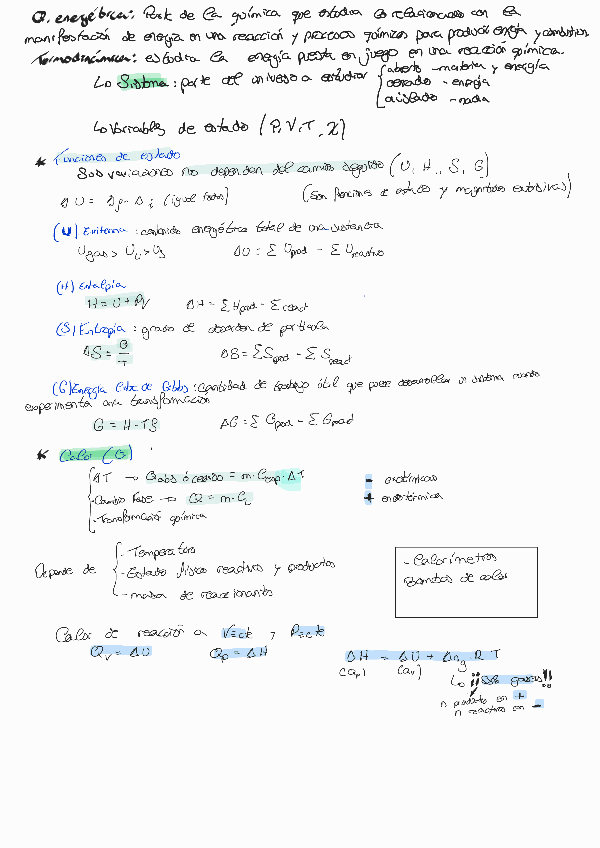 Q. energética: Parte de la química que estudia las relaciones con la
manifestación de energía en una reacción y procesos químicos para producir energía y combustibles
Termodinámica: estudia la energía puesta en juego en una reacción química.
↳ Sistema: parte del universo a estudiar { abierto - materia y energía
cerrado - energía
aislado - nada
↳ Variables de estado (P, V, T, X)
* Funciones de estado
Sus variaciones no dependen del camino seguido (U, H, S, G)
ΔU = Δf - Δi (igual todas) (Son funciones de estado y magnitudes extensivas)
(U) : contenido energético total de una sustancia
Ugas > UL > Us ΔU = Σ Uprod - Σ Ureactivo
(H) Entalpía
H = U + PV ΔH = Σ Hprod - Σ react
(S) Entropía : grado de desorden de partícula
ΔS = Q/T ΔS = Σ Sprod - Σ Sreact
(G) Energía libre de Gibbs : Cantidad de trabajo útil que puede desarrollar un sistema cuando
experimenta una transformación
G = H - TS ΔG = Σ Gprod - Σ Greact
* Calor (Q)
ΔT → Qabs ó cedido = m · Cesp · ΔT - exotérmicas
- Cambio Fase → Q = m · CL + endotérmica
- Transformación química
Depende de { - Temperatura
- Estado físico reactivos y productos
- masa de reaccionantes
- Calorímetros
Bombas de calor
Calor de reacción a V=cte y P=cte
Qv = ΔU Qp = ΔH ΔH = ΔU + Δng R T
(Qp) (Qv) ↳ ¡¡Sólo gases!!
n producto en +
n reactivos en -